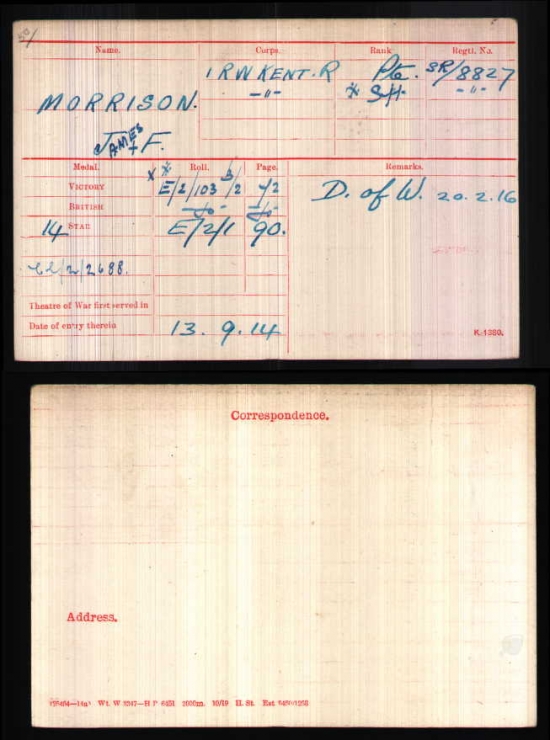 Name. Corps. Rank Regtl. No.
1 R W KENT. R Pte. SR/8827
MORRISON. -"- * Sjt. -"-
JAMES + F.
Medal. Roll. Page. Remarks.
X *
VICTORY E/2/103 B/2 72 D. of W. 20.2.16
BRITISH -do- -do-
14 STAR E/2/1 90.
/2/2688.
Theatre of War first served in
Date of entry therein 13. 9. 14 K. 1380.
Correspondence.
Address.
Wt. W 5347—H P 2000m. 10/19 H. St.